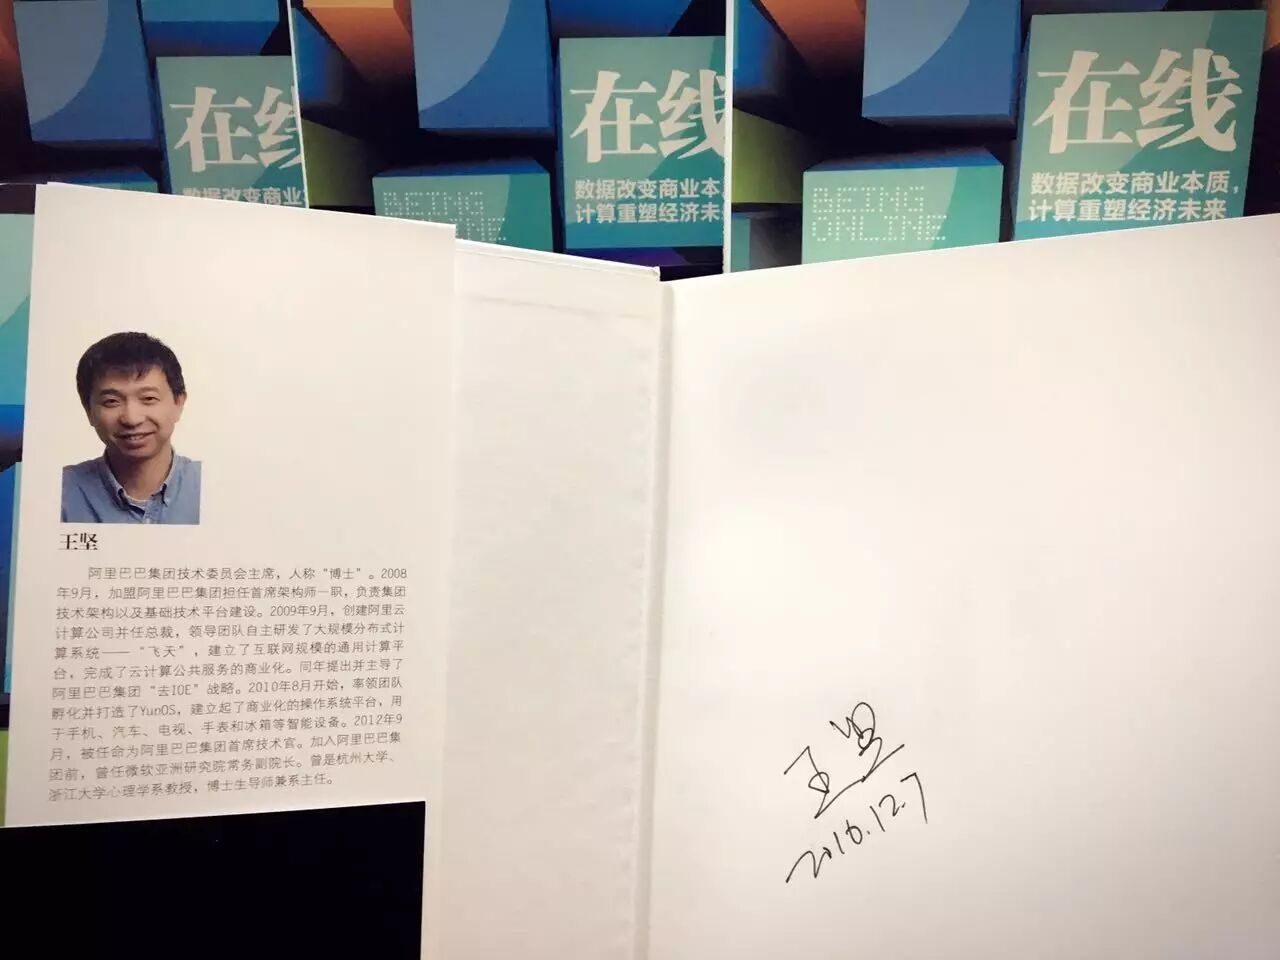 在线
数据改变商业
在线
数据改变商业本
计算重塑经济未
BEING
ONLINE
在线
数据改变商业本质,
计算重塑经济未来
BEING
ONLINE
王坚
阿里巴巴集团技术委员会主席，人称“博士”。2008
年9月，加盟阿里巴巴集团担任首席架构师一职，负责集团
技术架构以及基础技术平台建设。2009年9月，创建阿里云
计算公司并任总裁，领导团队自主研发了大规模分布式计
算系统——“飞天”，建立了互联网规模的通用计算平
台，完成了云计算公共服务的商业化。同年提出并主导了
阿里巴巴集团“去IOE”战略。2010年8月开始，率领团队
孵化并打造了YunOS，建立起了商业化的操作系统平台，用
于手机、汽车、电视、手表和冰箱等智能设备。2012年9
月，被任命为阿里巴巴集团首席技术官。加入阿里巴巴集
团前，曾任微软亚洲研究院常务副院长。曾是杭州大学、
浙江大学心理学系教授，博士生导师兼系主任。
王坚
2016.12.7